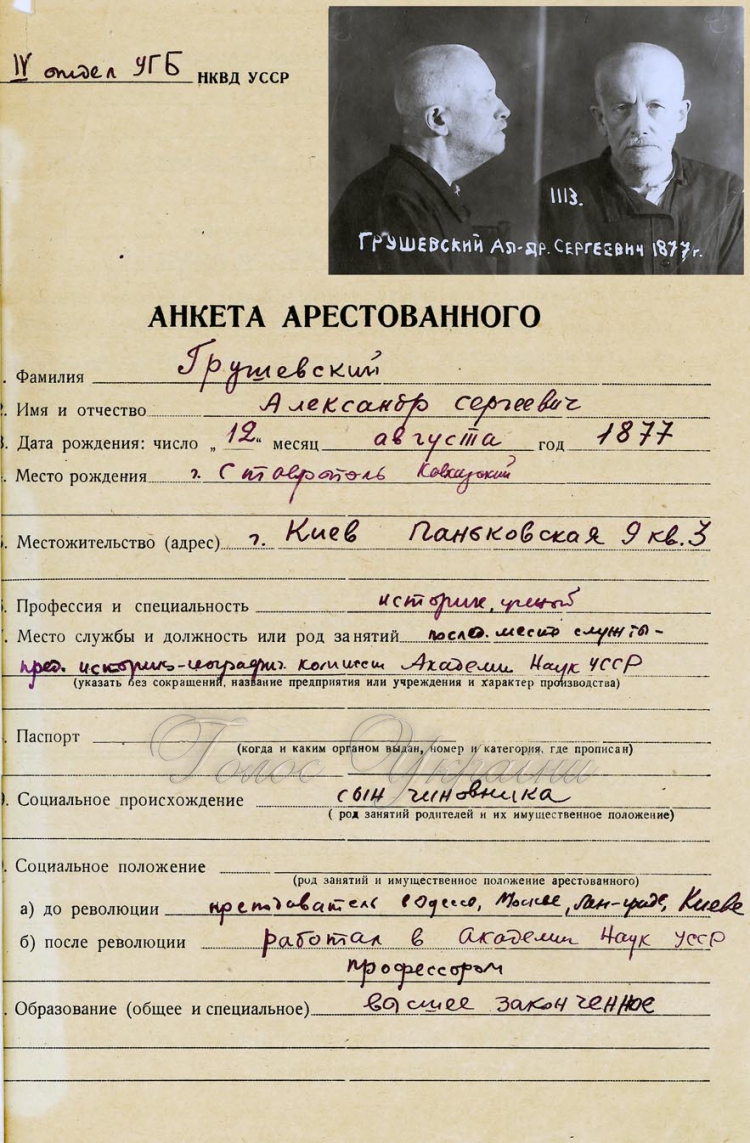 IV отдел УГБ НКВД УССР
1113.
ГРУШЕВСКИЙ АЛ-ДР. СЕРГЕЕВИЧ 1877 г.
АНКЕТА АРЕСТОВАННОГО
. Фамилия Грушевский
. Имя и отчество Александр Сергеевич
. Дата рождения: число „ 12 “ месяц августа год 1877
. Место рождения г. Ставрополь Кавказский
. Местожительство (адрес) г. Киев Паньковская 9 кв. 3
. Профессия и специальность историк, ученый
. Место службы и должность или род занятий послед. место службы -
пред. историко-географич. комиссии Академии Наук УССР
(указать без сокращений, название предприятия или учреждения и характер производства)
. Паспорт
(когда и каким органом выдан, номер и категория, где прописан)
Голос України
. Социальное происхождение сын чиновника
( род занятий родителей и их имущественное положение)
. Социальное положение
(род занятий и имущественное положение арестованного)
а) до революции преподаватель в Одессе, Москве, Лен-граде, Киеве
б) после революции работал в Академии Наук УССР
профессором
. Образование (общее и специальное) высшее законченное